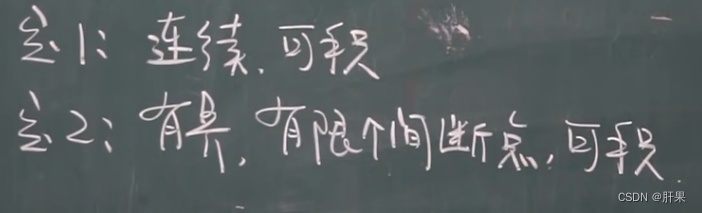 定1: 连续.可积
定2: 有界,有限个间断点,可积.
CSDN @肝果